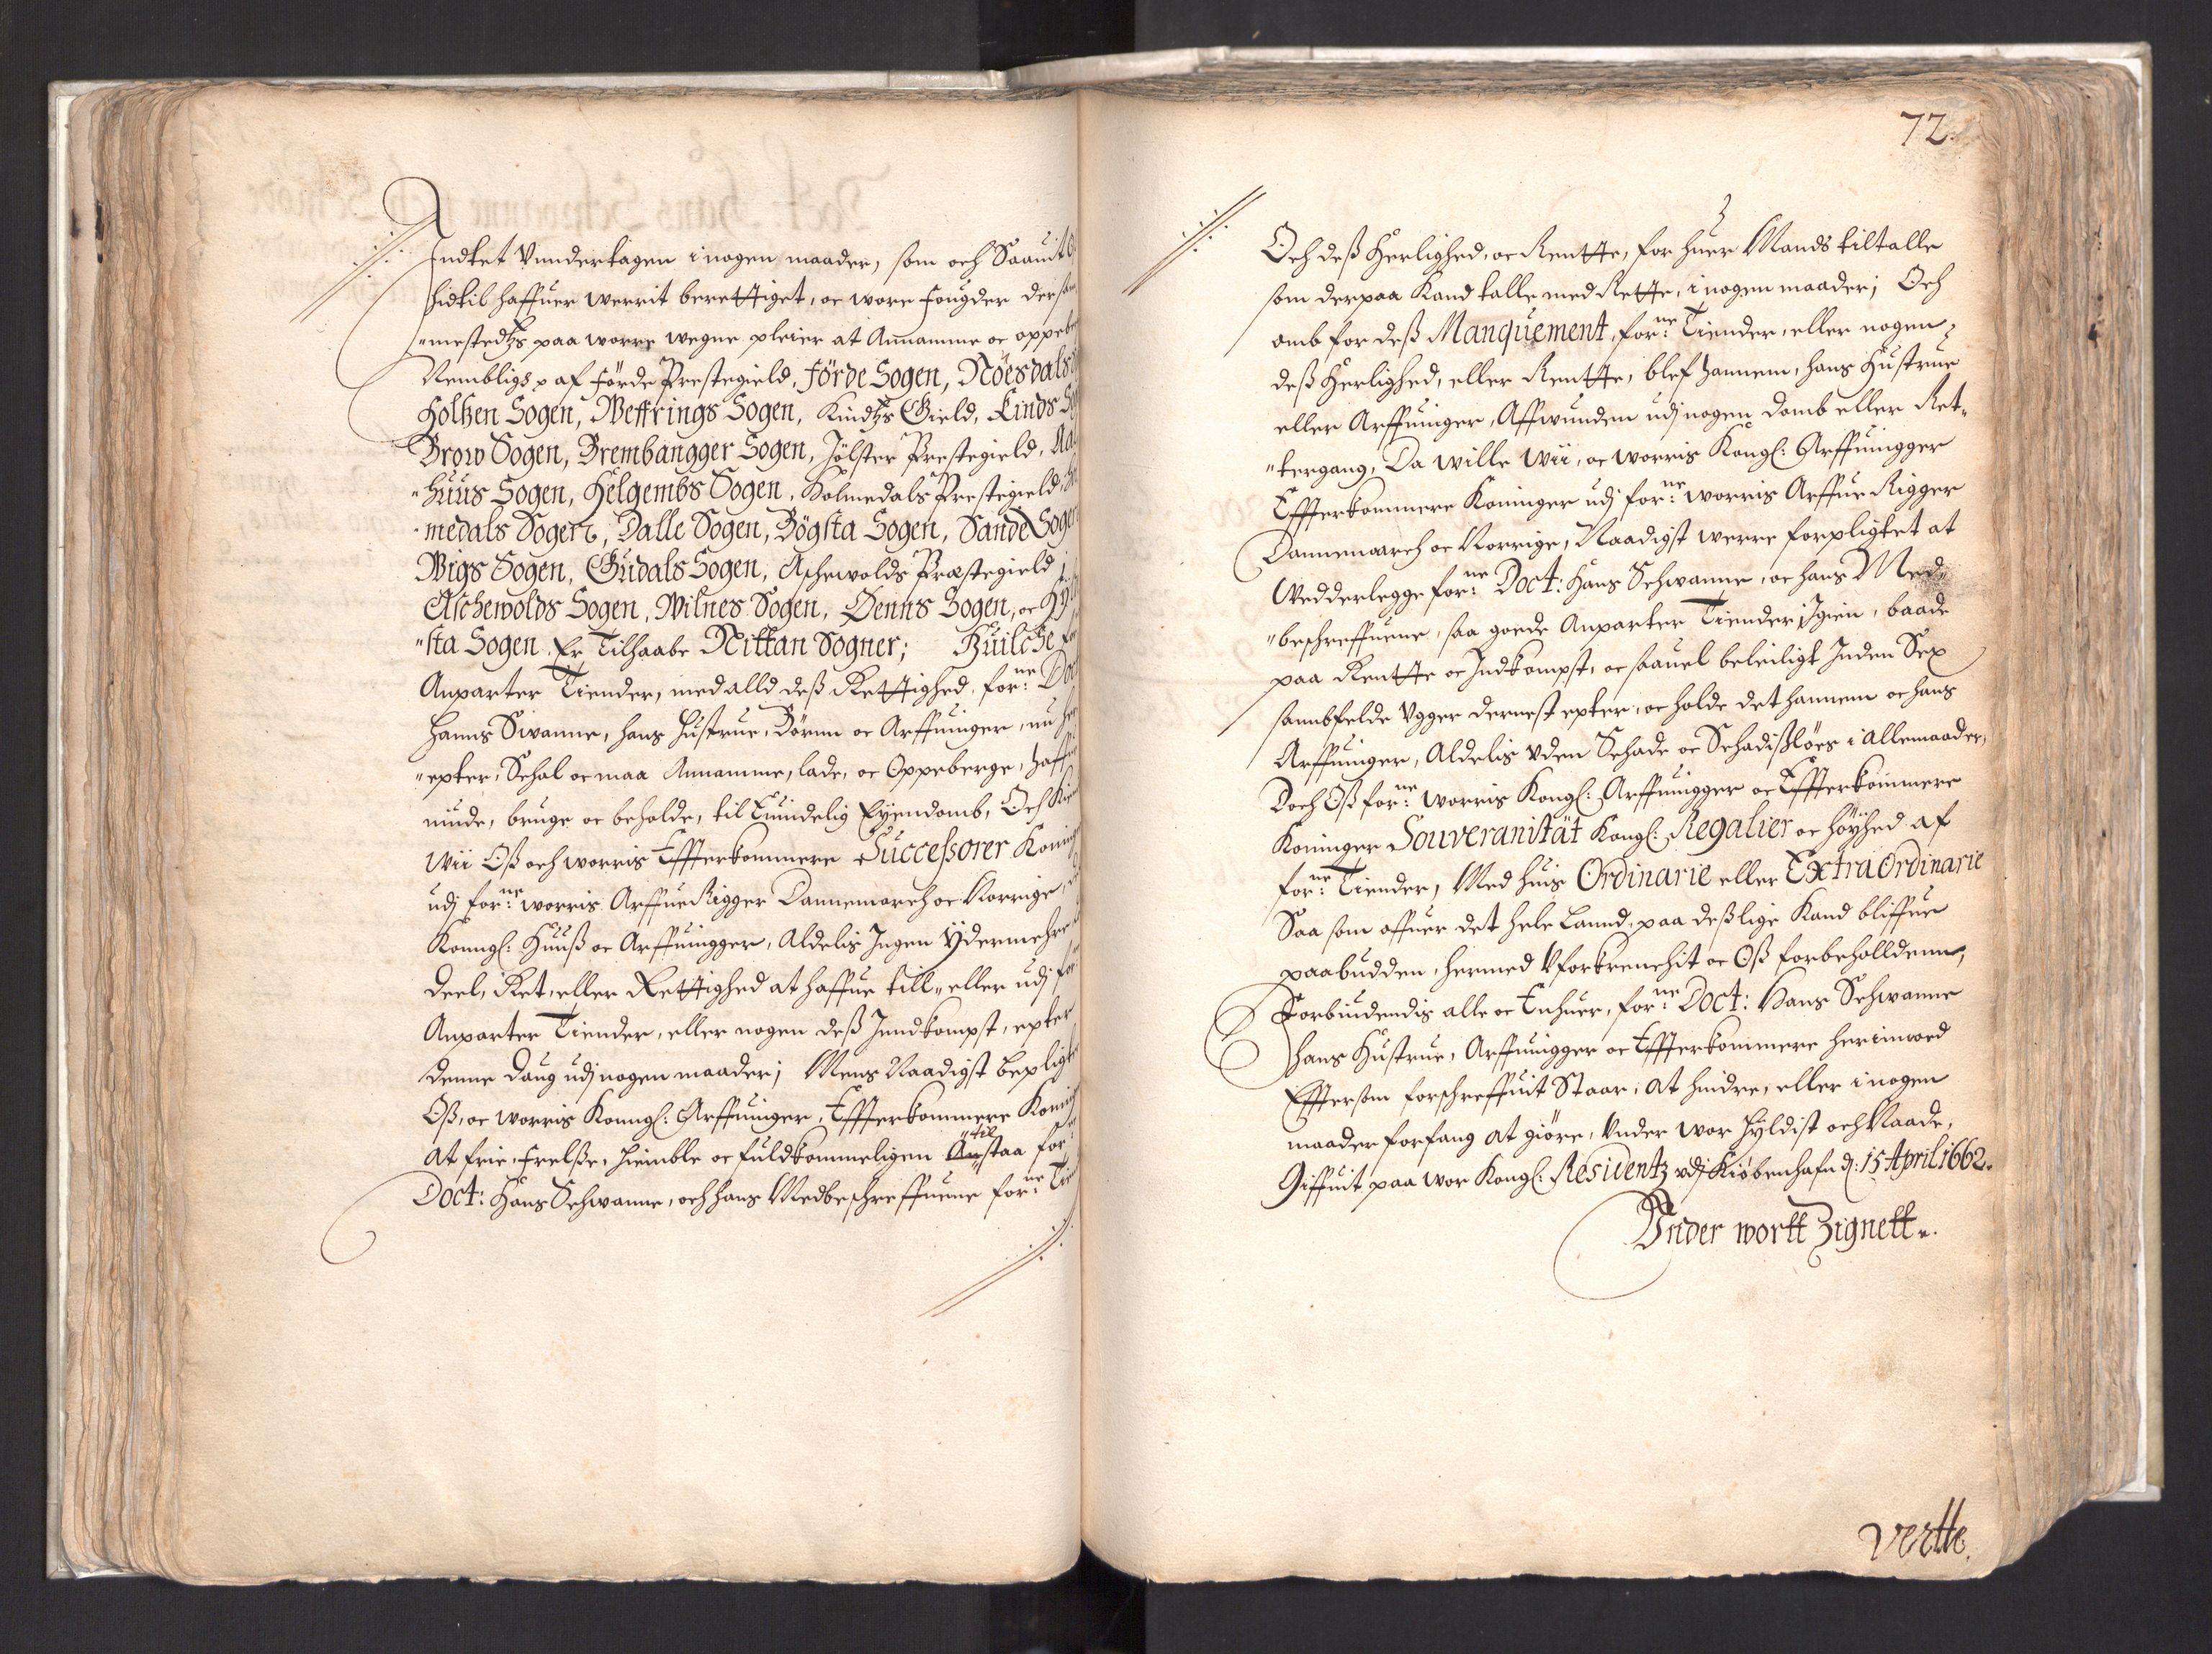 Indtet Vundertagen i nogen maader, som och Saauit
hidtil haffuer werrit berettiget, oc wore Fougder der sam
"mestedtzs paa worre wegne pleier at Annamme oc oppeb
Nembligs af Förde Prestegield, Förde Sogen, Nöesdals
Holsen Sogen, Weffrings Sogen, Kindtzs Gield, Kinds
Brow Sogen, Brembangger Sogen, Jölster Prestegield, Aal
"huus Sogen, Helgembs Sogen, Holmedals Prestegield,
"medals Sogen, Dalle Sogen, Bögsta Sogen, Sande Sogen
Wigs Sogen, Gudals Sogen, Aschewolds Præstegield
Aschewolds Sogen, Wilnes Sogen, Øenns Sogen, oc Hyl
"sta Sogen. Er Tilhaabe Nittan Sogner; Huilche for
Anparter Tiender, med alld deß Rettighed, forne: Doct
Hanns Svanne, hans Hustrue, Börnn oc Arffuinger, nu her
"epter, Schal oc maa Annamme, lade, oc Oppeberge, haff
niude, bruge oc beholde, til Euindelig Eyendomb, Och
Wii Oß och worris Effterkommere Successorer Koning
udj forne: worris Arffue Rigger Dannemarch oc Norrige,
Konngl: Huuß oc Arffuingger, Aldelis Ingen Ydermehre
deel, Ret, eller Rettighed at haffue till, eller udj for
Anparter Tiender, eller nogen deß Inndkompst, epter
denne Daug udj nogen maader; Mens Naadigst bepligt
Oß, oc worris Konngl: Arffuinger, Effterkommere Koning
at frie, Frelße, hiemble oc fuldkommeligen til An staa for
Doct: Hans Schwanne, och hans Medbeschreffuene forne: Tie
72.
Och deß Herlighed, oc Rentte, for huer Mands tiltalle
som derpaa Kand talle med Rette, i nogen maader; Och
omb for deß Manquement, forne: Tiender, eller nogen
deß Herlighed, eller Rentte, blef hannem, hans Hustrue
eller Arffuinger, Affwunden udj nogen Domb eller Ret,
"tergang, Da wille Wii, oc worris Kongl: Arffuingger
Effterkommere Koninger udj forne: worris Arffue Rigger
Dannemarch oc Norrige, Naadigst werre forpligtet at
Wedderlegge forne: Doct: Hans Schwanne, oc hans Med,
"beschreffuene, saa goede Anparter Tiender Igien, baade
paa Rentte oc Indkompst, oc saauel beleiligt Inden Sex
sambfelde Ugger dernest epter, oc holde det hannem oc hans
Arffuinger, Aldelis uden Schade oc Schadißlöes i allemaader,
Doch Oß forne: worris Kongl: Arffuingger oc Effterkommere
Koninger Souveranität Kongl: Regalier oc höyhed af
forne: Tiender, Med huis Ordinarie eller Extraordinarie
Saa som offuer det hele Lannd, paa deßlige Kand bliffue
paabudden, hermed Uforkrenchit oc Oß forbeholldenn,
Forbiudendis alle oc Enhuer, forne: Doct: Hans Schwanne
hans Hustrue, Arffuingger oc Effterkommere herimoed
Efftersom forschreffuit Staar, at hindre, eller i nogen
maader forfang at giöre, Under wor Hyldist och Naade,
Giffuit paa wor Kongl: Residentz udj Kiöbenhafn d: 15 April 1662.
Under wortt Zignett.
Vertte.